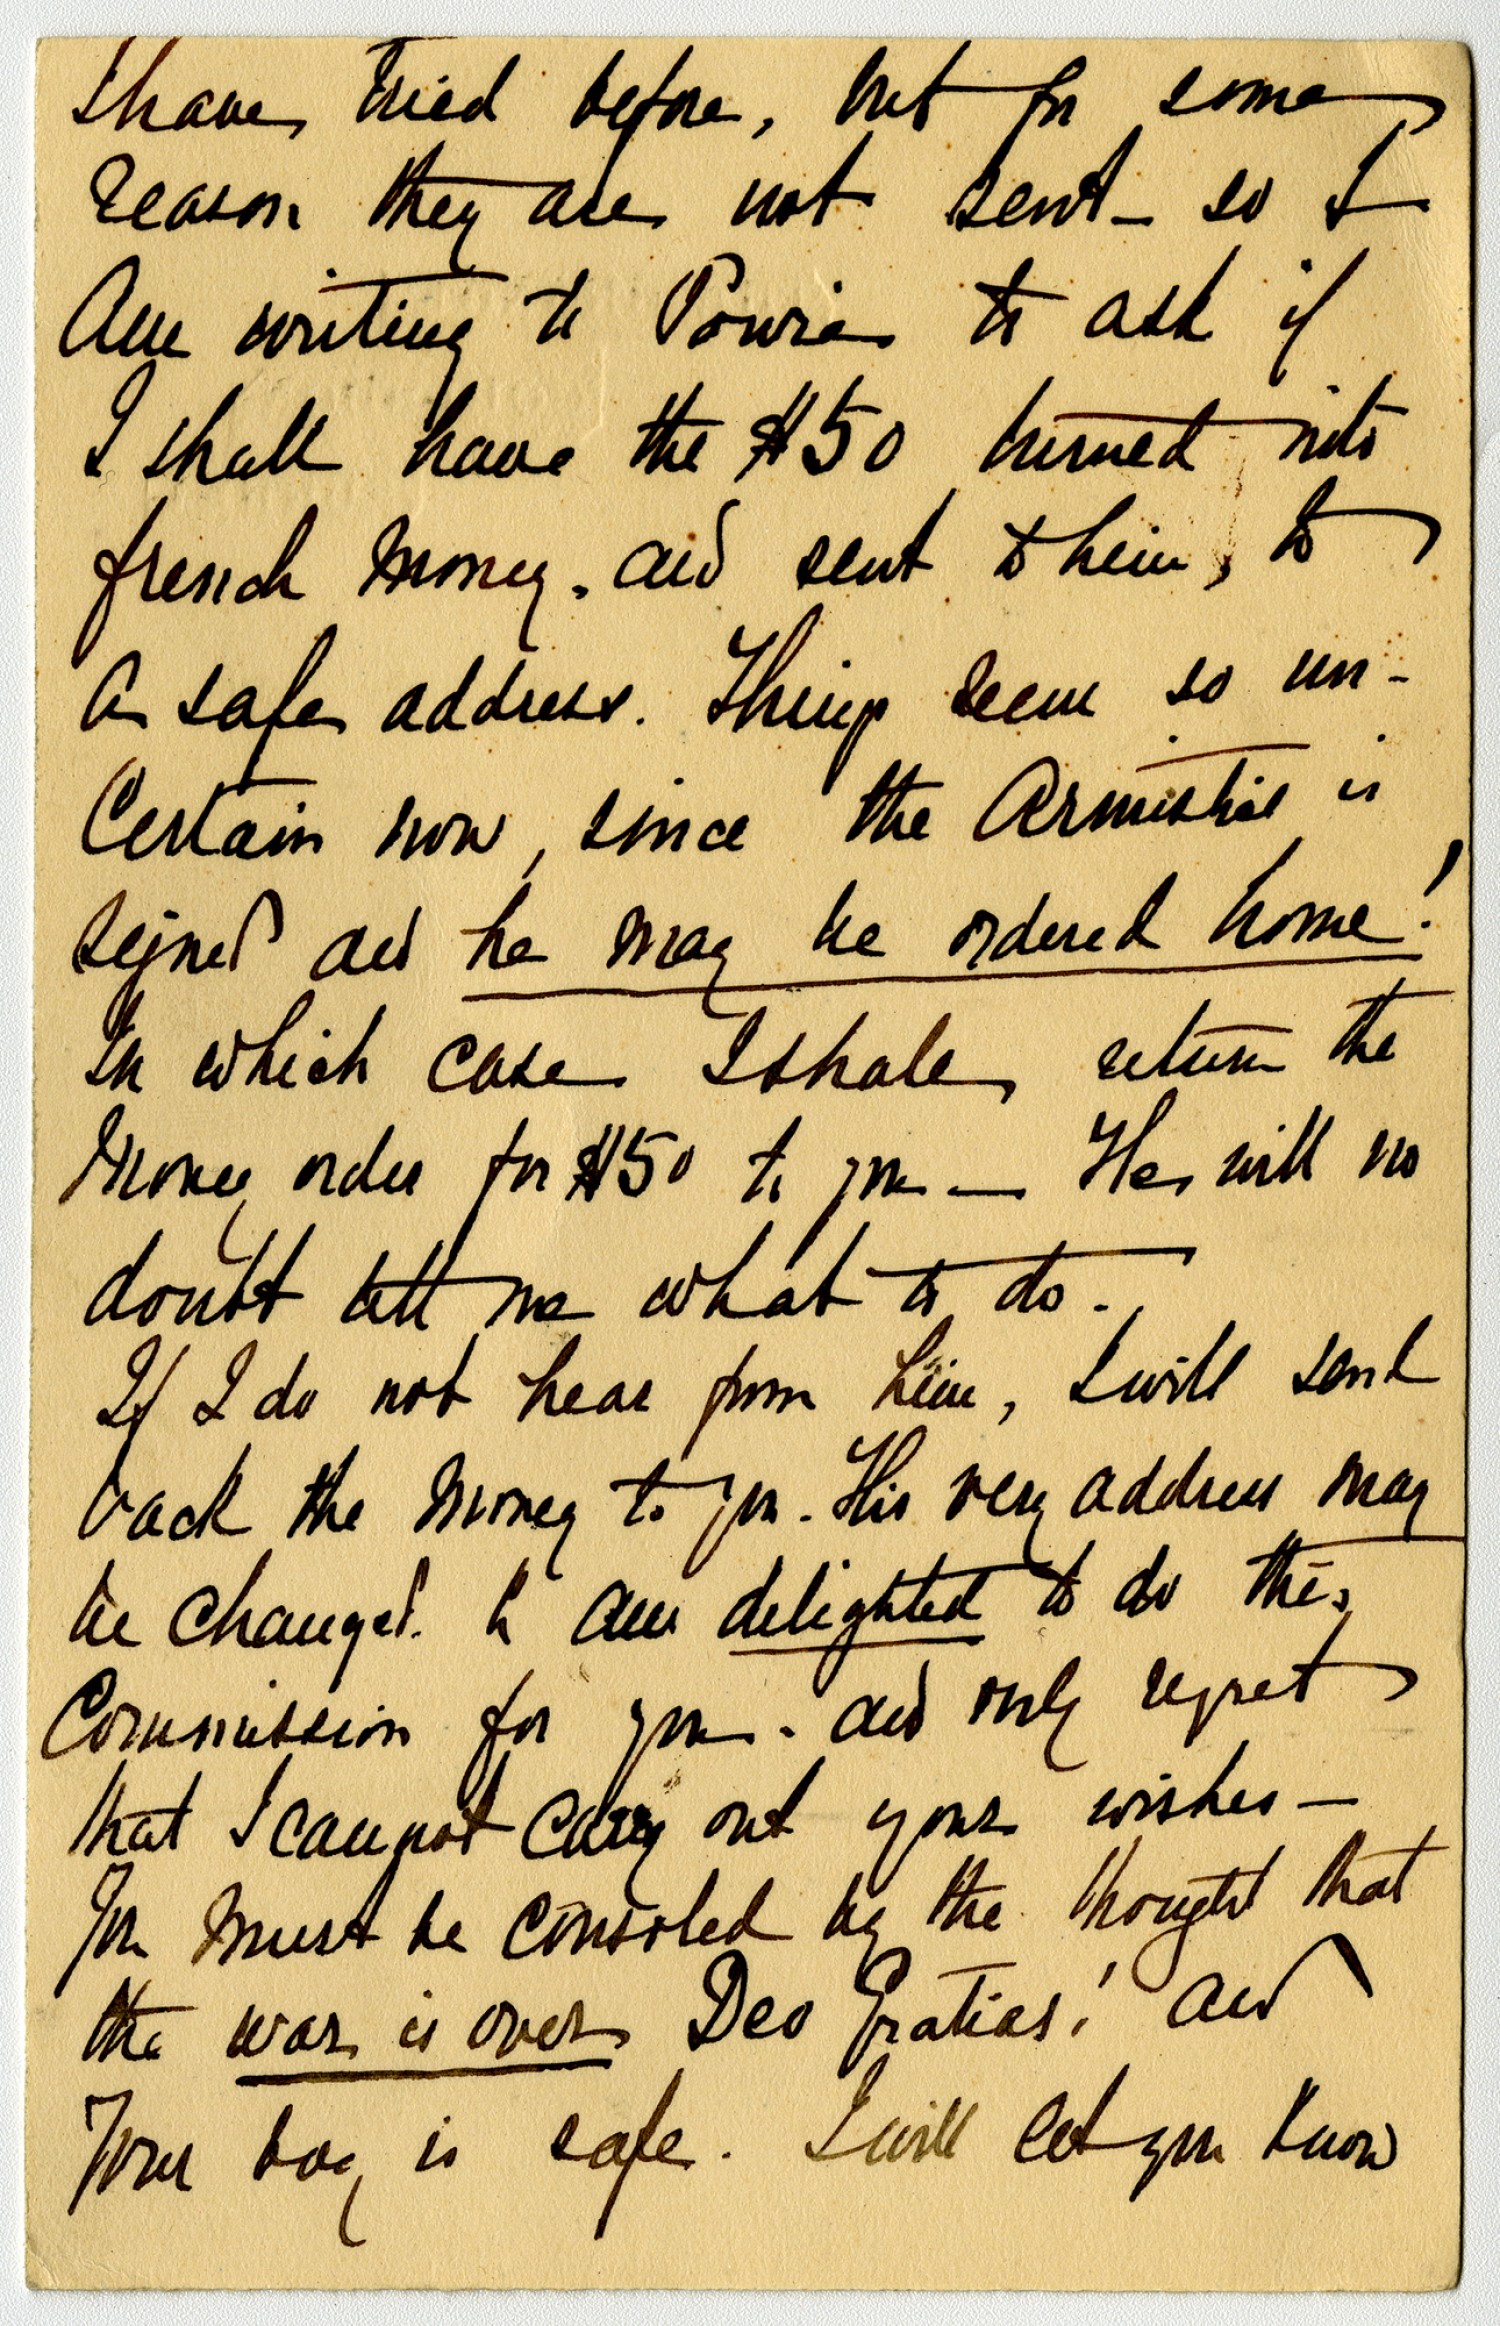 I have tried before, but for some
reason they are not sent - so I
am writing to Powie to ask if
I shall have the $50 turned into
french money. and sent to him, to
a safe address. Things seem so un-
certain now, since the Armistice is
signed and he may be ordered home!
In which case I shall return the
money order for $50 to you — He will no
doubt tell me what to do.
If I do not hear from him, I will send
back the money to you. His very address may
be changed. I am delighted to do this
commission for you. and only regret
that I cannot carry out your wishes —
You must be consoled by the thought that
the war is over Deo Gratias! and
Your boy is safe. I will let you know